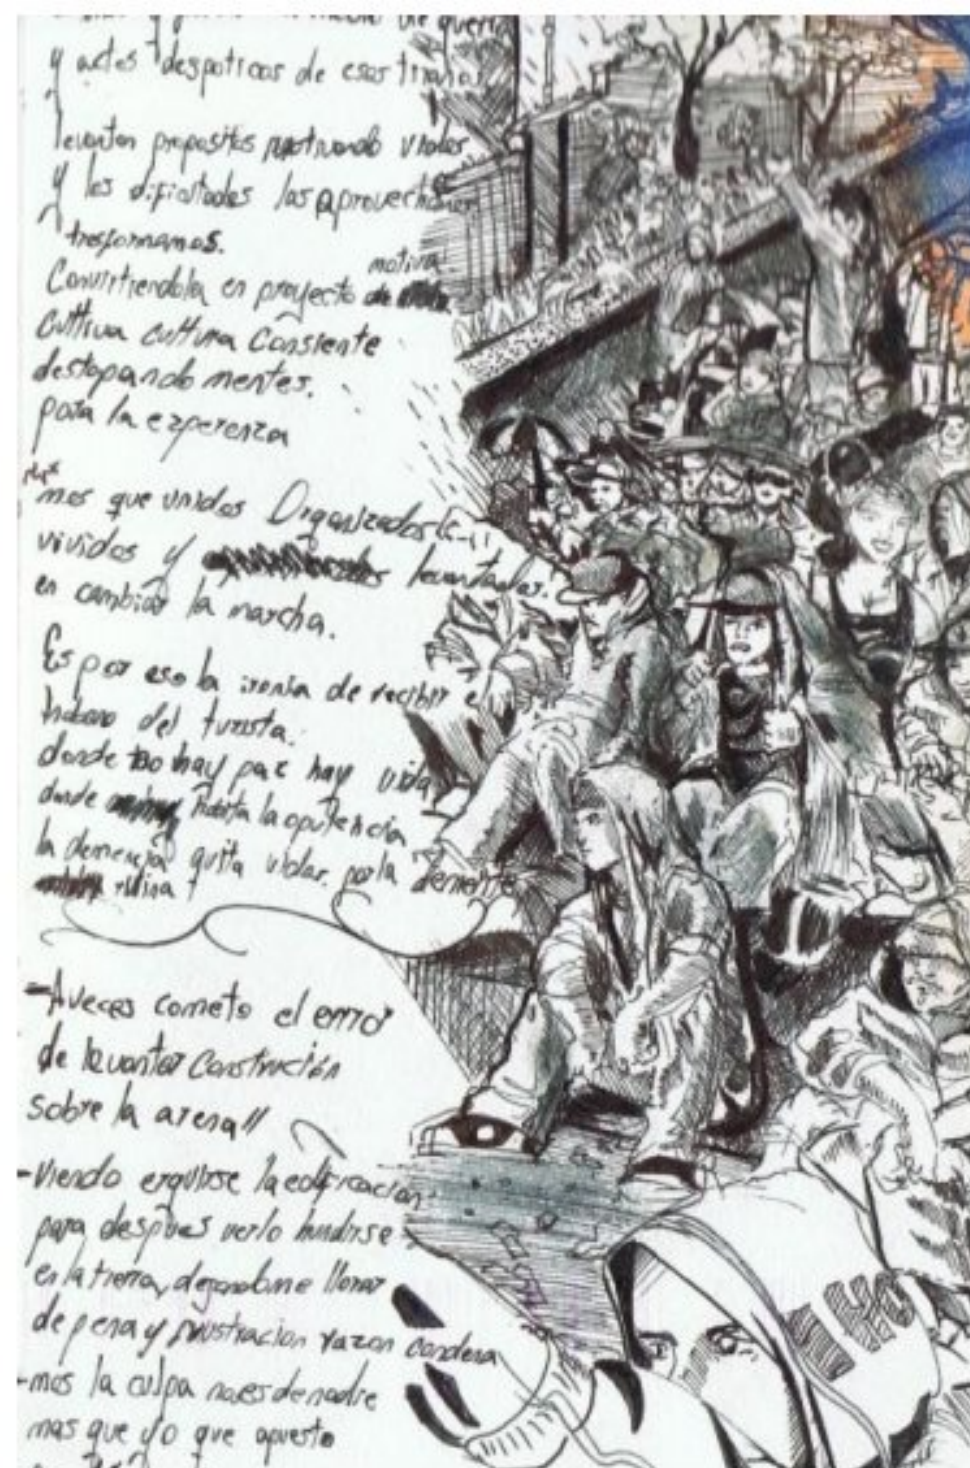 y actos despoticos de esos tiranos
levanten propositos motivando vidas
y las dificultades las aprovechamos
trasformamos.
motiva
Convirtiendola en proyecto de
cultiva cultura Consiente
destapando mentes.
para la ezperenza
mos que unidos Organizados
vividos y levantados!
en cambiar la marcha.
Es por eso la ironia de recibir el
habano del turista.
donde no hay paz hay vida
donde habita la opulencia
la demencia quita vidas. por la demente
-Aveces cometo el error
de levantar Construción
sobre la arena//
-viendo erguirse la edificacion
para despues verlo hundirse
en la tierra, dejandome llorar
de pena y frustracion razon condena
-mas la culpa no es de nadie
mas que yo que apuesto